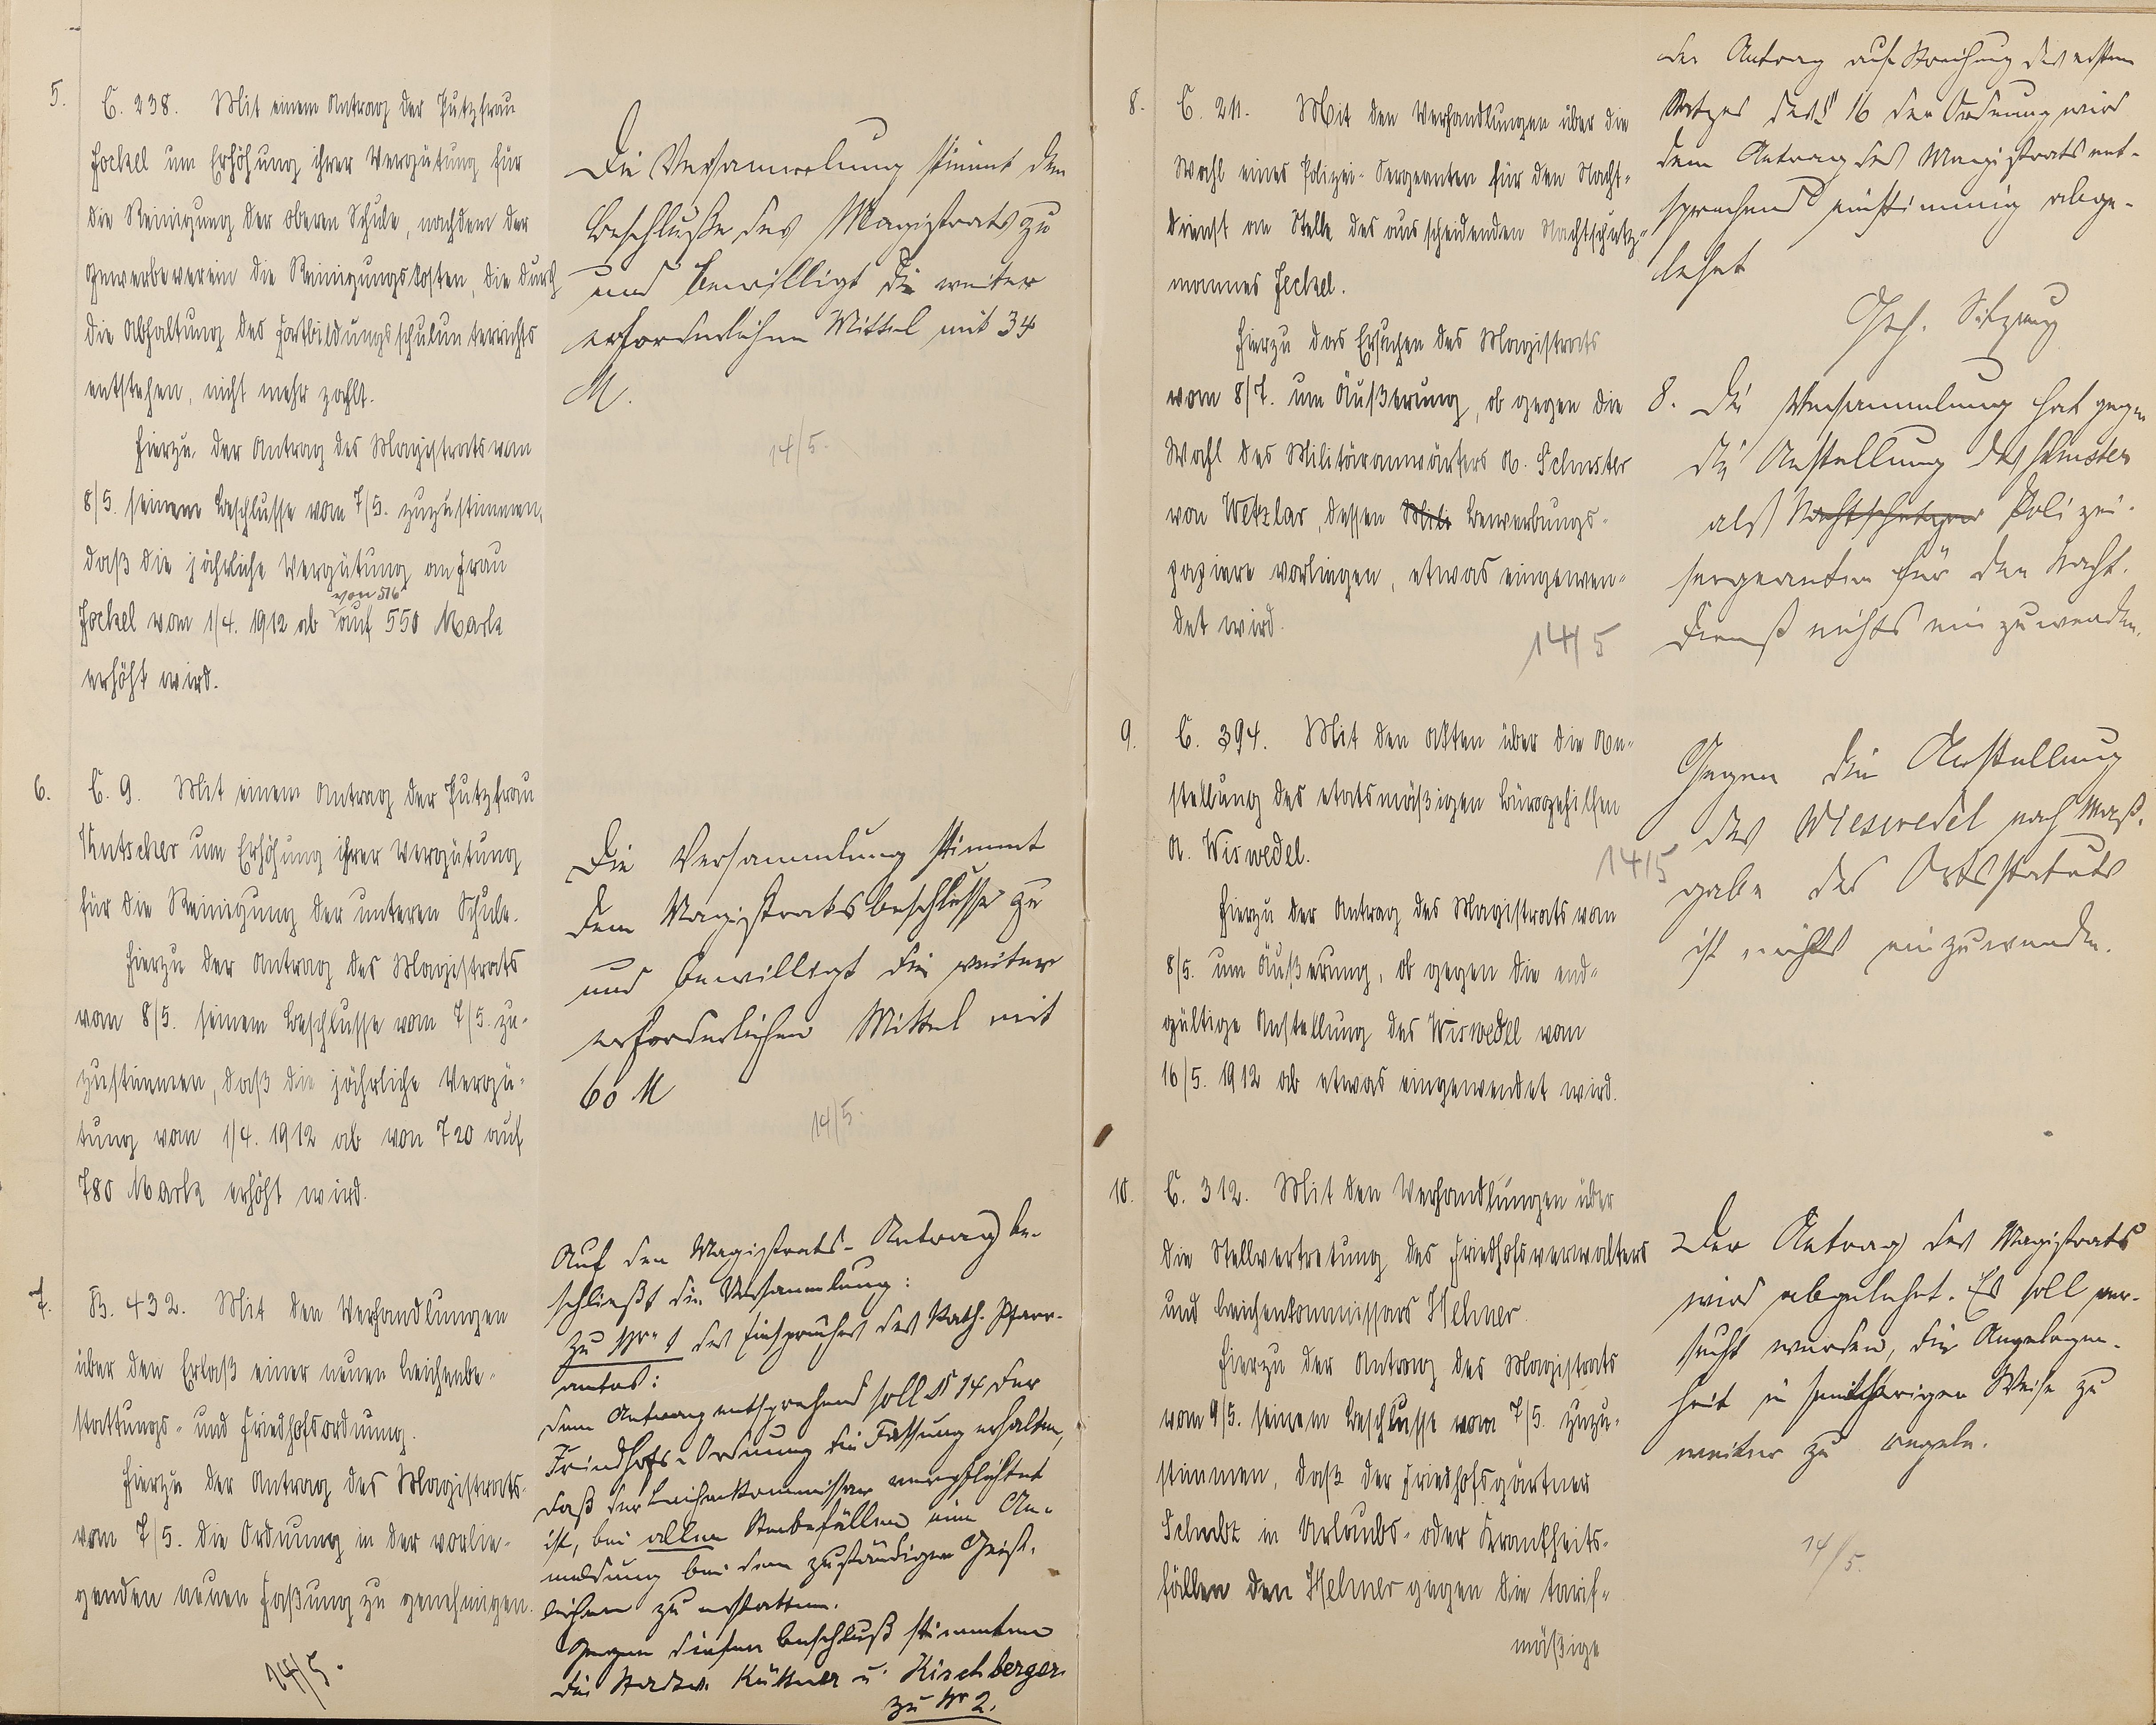 5.
C. 238. Mit einem Antrag der Putzfrau
Jockel um Erhöhung ihrer Vergütung für
die Reinigung der oberen Schule, nachdem der
Gewerbeverein die Reinigungskosten, die durch
die Abhaltung des Fortbildungsschulunterrichts
entstehen, nicht mehr zahlt.
Hierzu der Antrag des Magistrats vom
8/5. seinem Beschlusse vom 7/5. zuzustimmen,
daß die jährliche Vergütung an Frau
von 516
Jockel vom 1/4. 1912 ab auf 550 Mark
erhöht wird.
Die Versammlung stimmt dem
Beschluße des Magistrats zu
und bewilligt die weiter
erforderlichen Mittel mit 34
M.
14/5.
6.
C. 9. Mit einem Antrag der Putzfrau
Kutscher um Erhöhung ihrer Vergütung
für die Reinigung der unteren Schule.
Hierzu der Antrag des Magistrats
vom 8/5. seinem Beschlusse vom 7/5. zu-
zustimmen, daß die jährliche Vergü-
tung vom 1/4. 1912 ab von 720 auf
780 Mark erhöht wird.
Die Versammlung stimmt
dem Magistratsbeschlusse zu
und bewilligt die weiter
erforderlichen Mittel mit
60 M
14/5.
7.
B. 432. Mit den Verhandlungen
über den Erlaß einer neuen Leichenbe-
stattungs- und Friedhofsordnung.
Hierzu der Antrag des Magistrats
vom 7/5. die Ordnung in der vorlie-
genden neuen Faßung zu genehmigen.
14/5.
Auf den Magistrats-Antrag be-
schließt die Versammlung:
Zu Nr. 1 des Einspruches des Kath. Pfarr-
amtes:
dem Antrag entsprechend soll § 14 der
Friedhofs-Ordnung die Fassung erhalten,
daß der Leichenkommissar verpflichtet
ist, bei allen Sterbefällen eine An-
meldung bei dem zuständigen Geist-
lichen zu erstatten.
Gegen diesen Beschluß stimmten
die Stadtv. Küttner u. Hirschberger
zu Nr 2.
der Antrag auf Streichung des ersten
Satzes des § 16 der Ordnung wird
dem Antrag des Magistrats ent-
sprechend einstimmig abge-
lehnt
Geh. Sitzung
8.
C. 211. Mit den Verhandlungen über die
Wahl eines Polizei-Sergeanten für den Nacht-
dienst an Stelle des ausscheidenden Nachtschutz-
mannes Jeckel.
Hierzu das Ersuchen des Magistrats
vom 8/7. um Äußerung, ob gegen die
Wahl des Militäranwärters A. Schuster
von Wetzlar, dessen Bewerbungs-
papiere vorliegen, etwas eingewen-
det wird.
14/5
8. Die Versammlung hat gegen
die Anstellung des Schuster
als Polizei-
sergeanten für den Nacht-
dienst nichts einzuwenden.
9.
C. 394. Mit den Akten über die An-
stellung des etatsmäßigen Bürogehilfen
A. Wiswedel.
Hierzu der Antrag des Magistrats vom
8/5. um Äußerung, ob gegen die end-
gültige Anstellung des Wiswedel vom
16/5. 1912 ab etwas eingewendet wird.
14/5
Gegen die Anstellung
des Wieswedel nach Maß-
gabe des Ortsstatuts
ist nichts einzuwenden.
10.
C. 312. Mit den Verhandlungen über
die Stellvertretung des Friedhofsverwalters
und Leichenkommissars Helmer.
Hierzu der Antrag des Magistrats
vom 9/5. seinem Beschlusse vom 7/5. zuzu-
stimmen, daß der Friedhofsgärtner
in Urlaubs- oder Krankheits-
fällen den Helmer gegen die tarif-
mäßige
Der Antrag des Magistrats
wird abgelehnt. Es soll ver-
sucht werden, die Angelegen-
heit in seitheriger Weise zu
weiter zu regeln.
14/5.